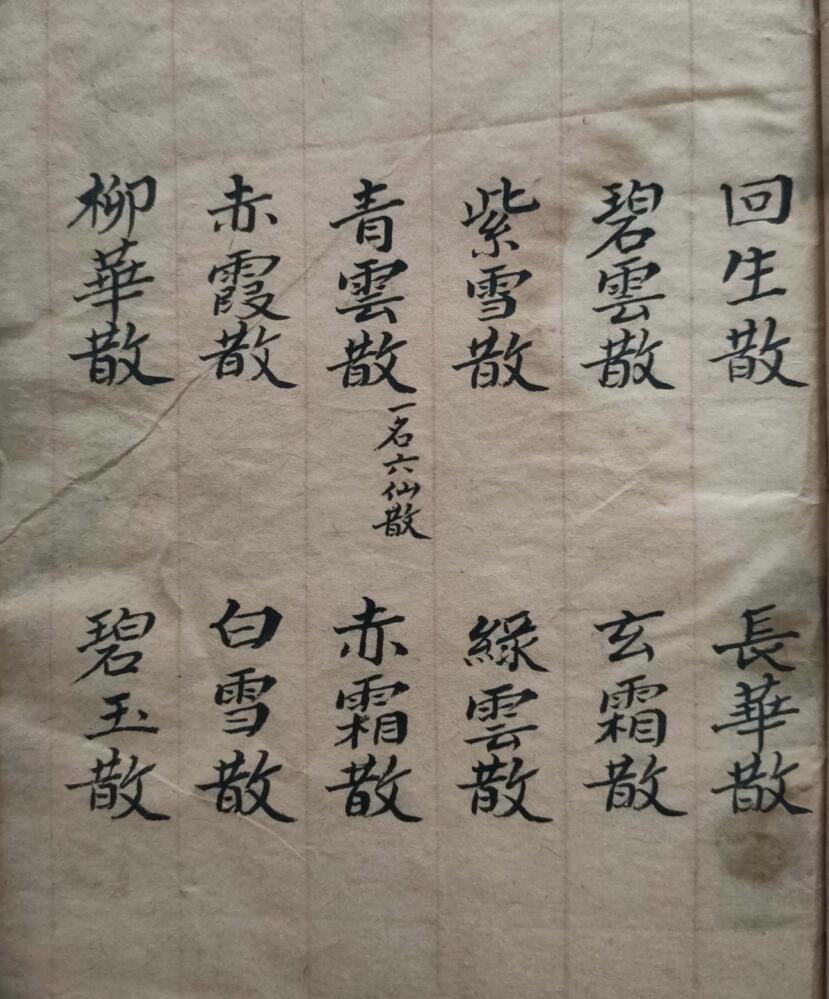 回生散 長華散
碧雲散 玄霜散
紫雪散 綠雲散
青雲散 一名六仙散 赤霜散
赤霞散 白雪散
柳華散 碧玉散